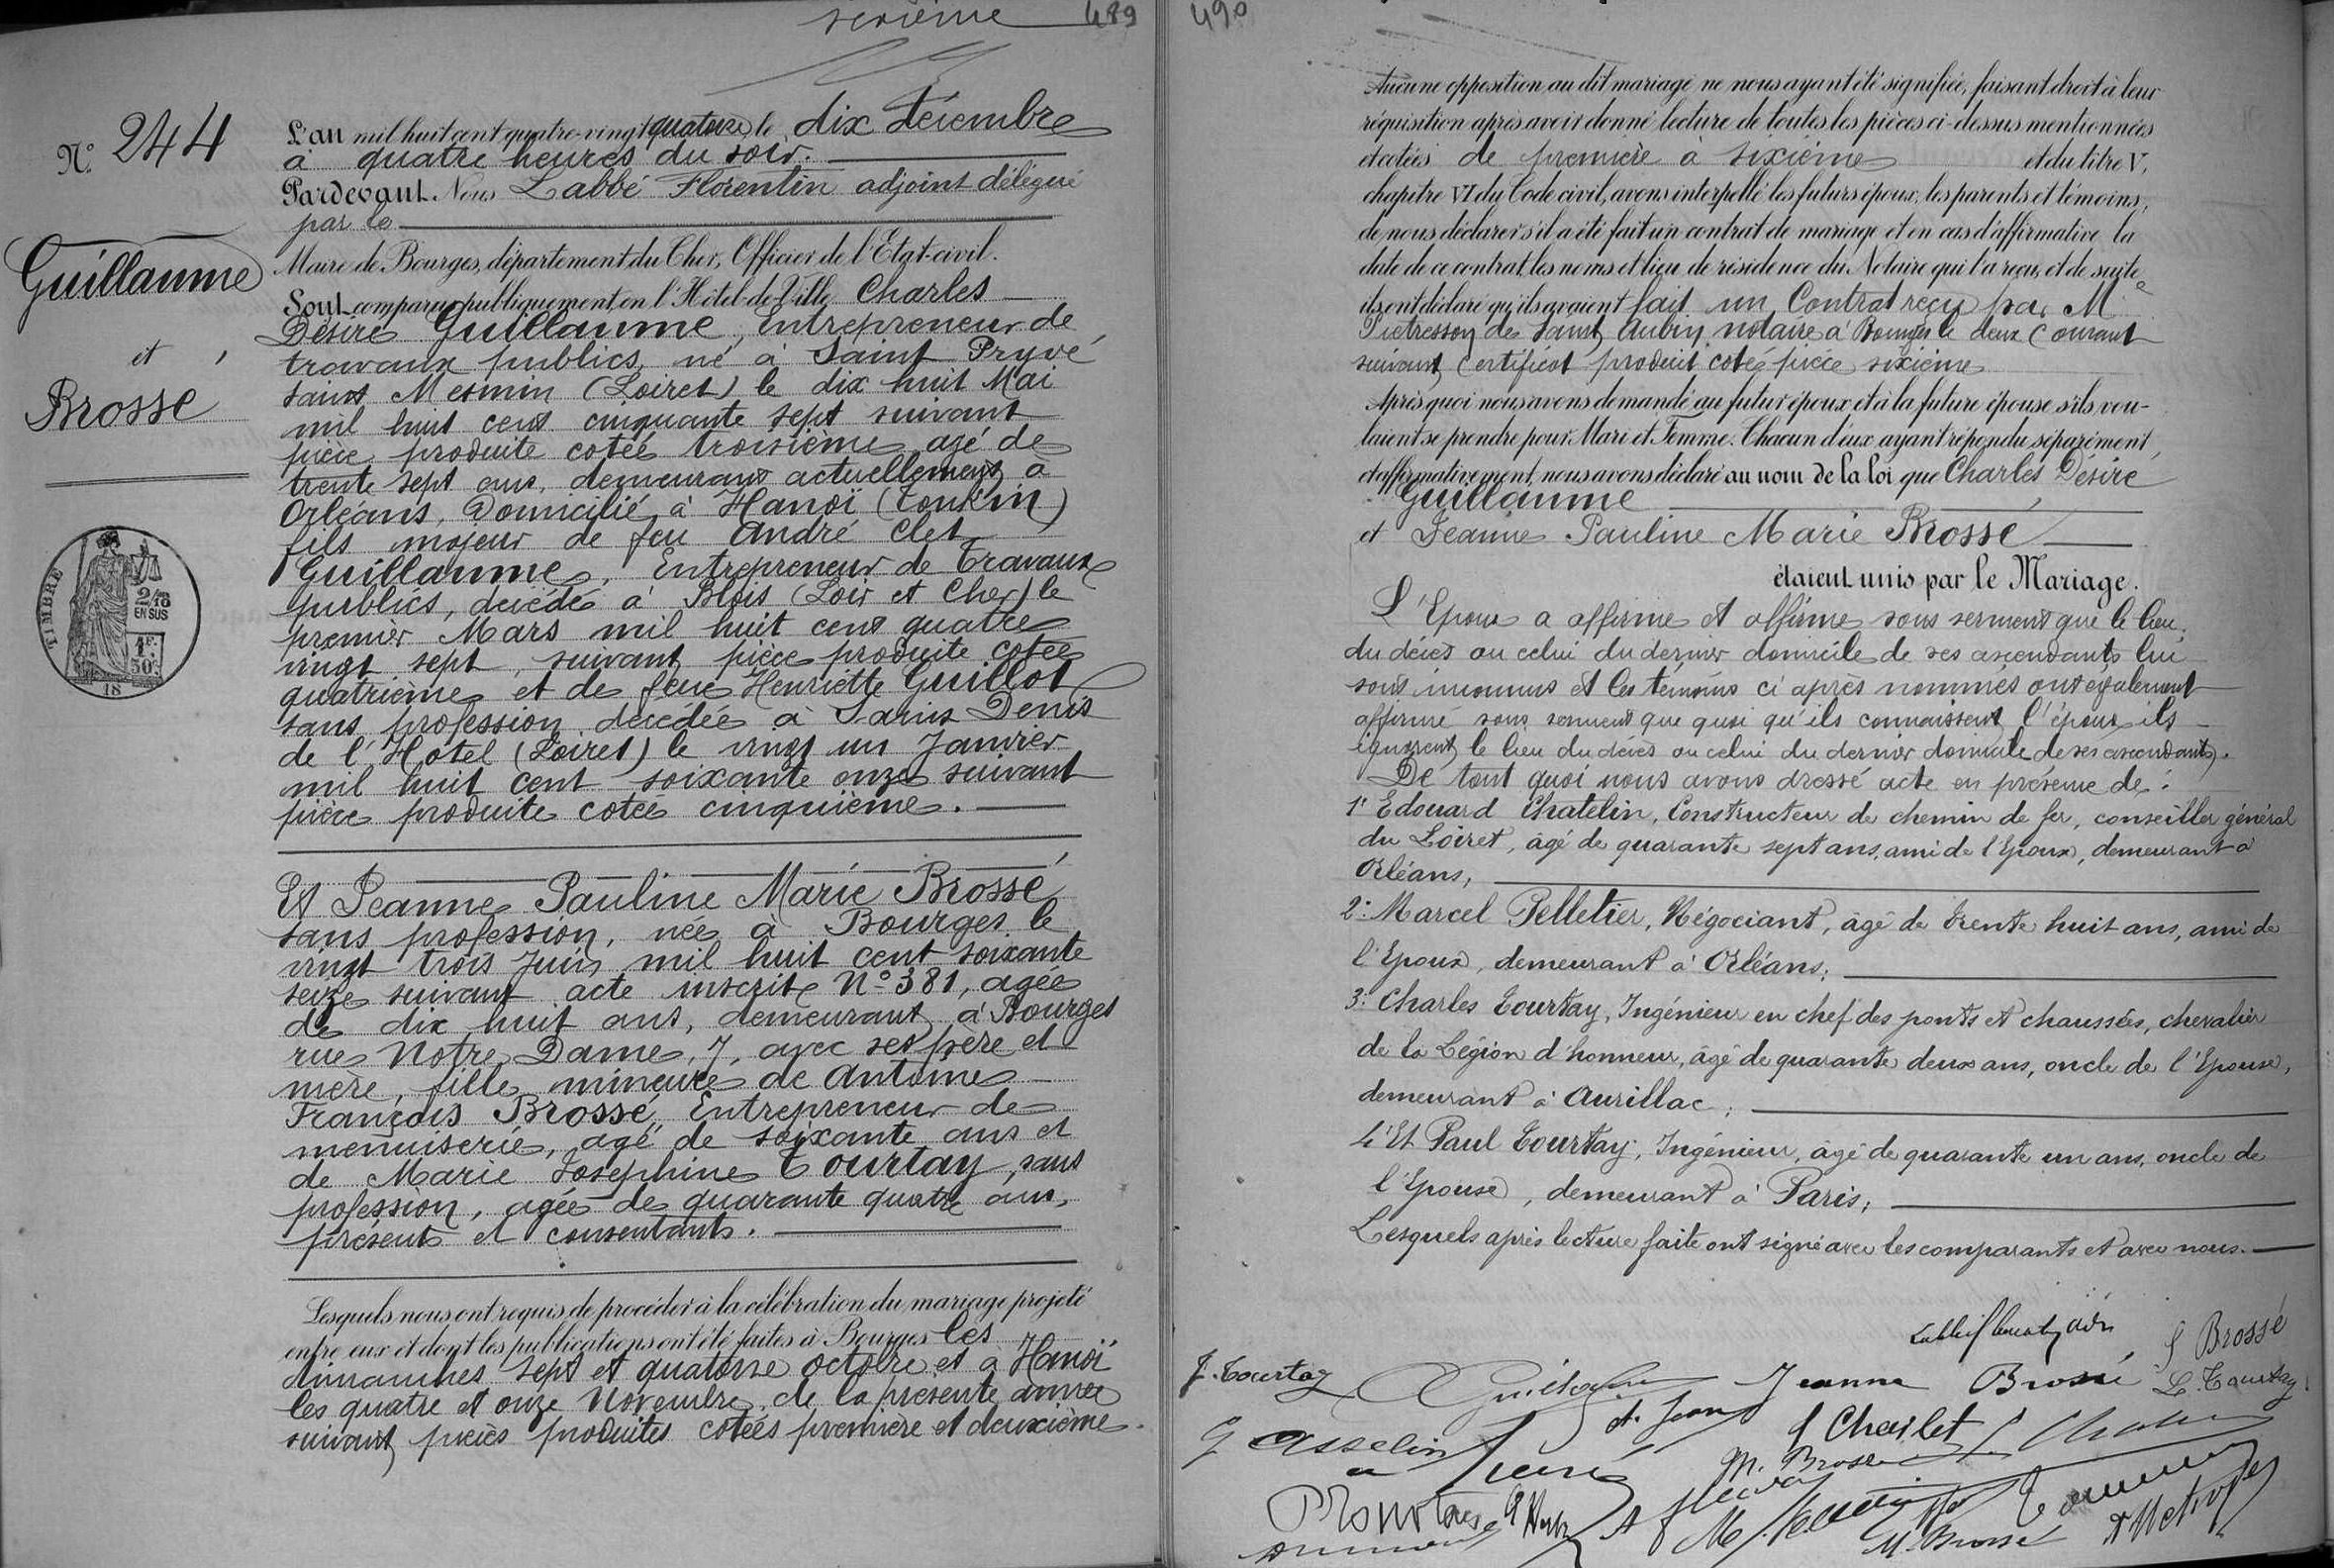 sixième 489
N° 244
Guillaume
et
Brossé
TIMBRE
2/10
EN SUS
1F.
50c.
18
L'an mil huit cent quatre-vingt quatorze, le dix décembre
à quatre heures du soir.
Pardevant Nous Labbé Florentin adjoint délégué
par le
Maire de Bourges, département du Cher, Officier de l'Etat-civil.
Sont comparus publiquement, en l'Hôtel-de-Ville Charles
Désiré Guillaume, Entrepreneur de
travaux publics, né à Saint Pryvé
Saint Mesmin (Loiret) le dix huit Mai
mil huit cent cinquante sept suivant
pièce produite cotée troisième agé de
trente sept ans, demeurant actuellement à
Orléans, Domicilié à Hanoï (Tonkin)
fils majeur de feu André Clet
Guillaume, Entrepreneur de Travaux
publics, décédé à Blois (Loir et Cher) le
premier Mars mil huit cent quatre
vingt sept, suivant pièce produite cotée
quatrième et de feue Henriette Guillot
sans profession décédée à Saint Denis
de l'Hôtel (Loiret) le vingt un Janvier
mil huit cent soixante onze suivant
pièce produite cotée cinquième.
Et Jeanne Pauline Marie Brossé
sans profession, née à Bourges le
vingt trois Juin mil huit cent soixante
seize suivant acte inscrit N° 381, agée
de dix huit ans, demeurant à Bourges
rue Notre Dame, 7, avec ses père et
mère, fille mineure de Antoine
François Brossé, Entrepreneur de
menuiserie, agé de soixante ans et
de Marie Joséphine Tourtay, sans
profession, agée de quarante quatre ans,
présents et consentants.
Lesquels nous ont requis de procéder à la célébration du mariage projeté
entre eux et dont les publications ont été faites à Bourges les
dimanches sept et quatorze octobre et à Hanoï
les quatre et onze Novembre de la présente année
suivant pièces produites cotées première et deuxième.
490
Aucune opposition au dit mariage ne nous ayant été signifiée, faisant droit à leur
réquisition après avoir donné lecture de toutes les pièces ci-dessus mentionnées
et cotées de première à sixième et du titre V,
chapitre VI du Code civil, avons interpellé les futurs époux, les parents et témoins,
de nous déclarer s'il a été fait un contrat de mariage et en cas d'affirmative la
date de ce contrat, les noms et lieu de résidence du Notaire qui l'a reçu, et de suite
ils ont déclaré qu'ils avaient fait un Contrat reçu par Me
Pietresson de Saint Aubin notaire à Bourges le deux Courant
suivant Certificat produit coté pièce sixième
Après quoi nous avons demandé au futur époux et à la future épouse s'ils vou-
laient se prendre pour Mari et Femme. Chacun d'eux ayant répondu séparément
et affirmativement, nous avons déclaré au nom de la loi que Charles Désiré
Guillaume
et Jeanne Pauline Marie Brossé
étaient unis par le Mariage.
L'Epoux a affirmé et affirme sous serment que le lieu
du décès ou celui du dernier domicile de ses ascendants lui
sont inconnus et les témoins ci après nommés ont également
affirmé sous serment que quoi qu'ils connaissent l'époux ils
ignorent le lieu du décès ou celui du dernier domicile de ses ascendants.
De tout quoi nous avons dressé acte en présence de :
1° Edouard Chatelin, Constructeur de chemin de fer, conseiller général
du Loiret, âgé de quarante sept ans, ami de l'Epoux, demeurant à
Orléans,
2° Marcel Pelletier, Négociant, âgé de trente huit ans, ami de
l'Epoux, demeurant à Orléans;
3° Charles Tourtay, Ingénieur en chef des ponts et chaussées, chevalier
de la Légion d'honneur, âgé de quarante deux ans, oncle de l'Epouse,
demeurant à Aurillac;
4° Et Paul Tourtay, Ingénieur, âgé de quarante un ans, oncle de
l'Epouse, demeurant à Paris;
Lesquels après lecture faite ont signé avec les comparants et avec nous.
Brossé
Tourtay Jeanne Brossé L. Tourtay
Chailet
G Asselin
M. Brossé
M. Brossé